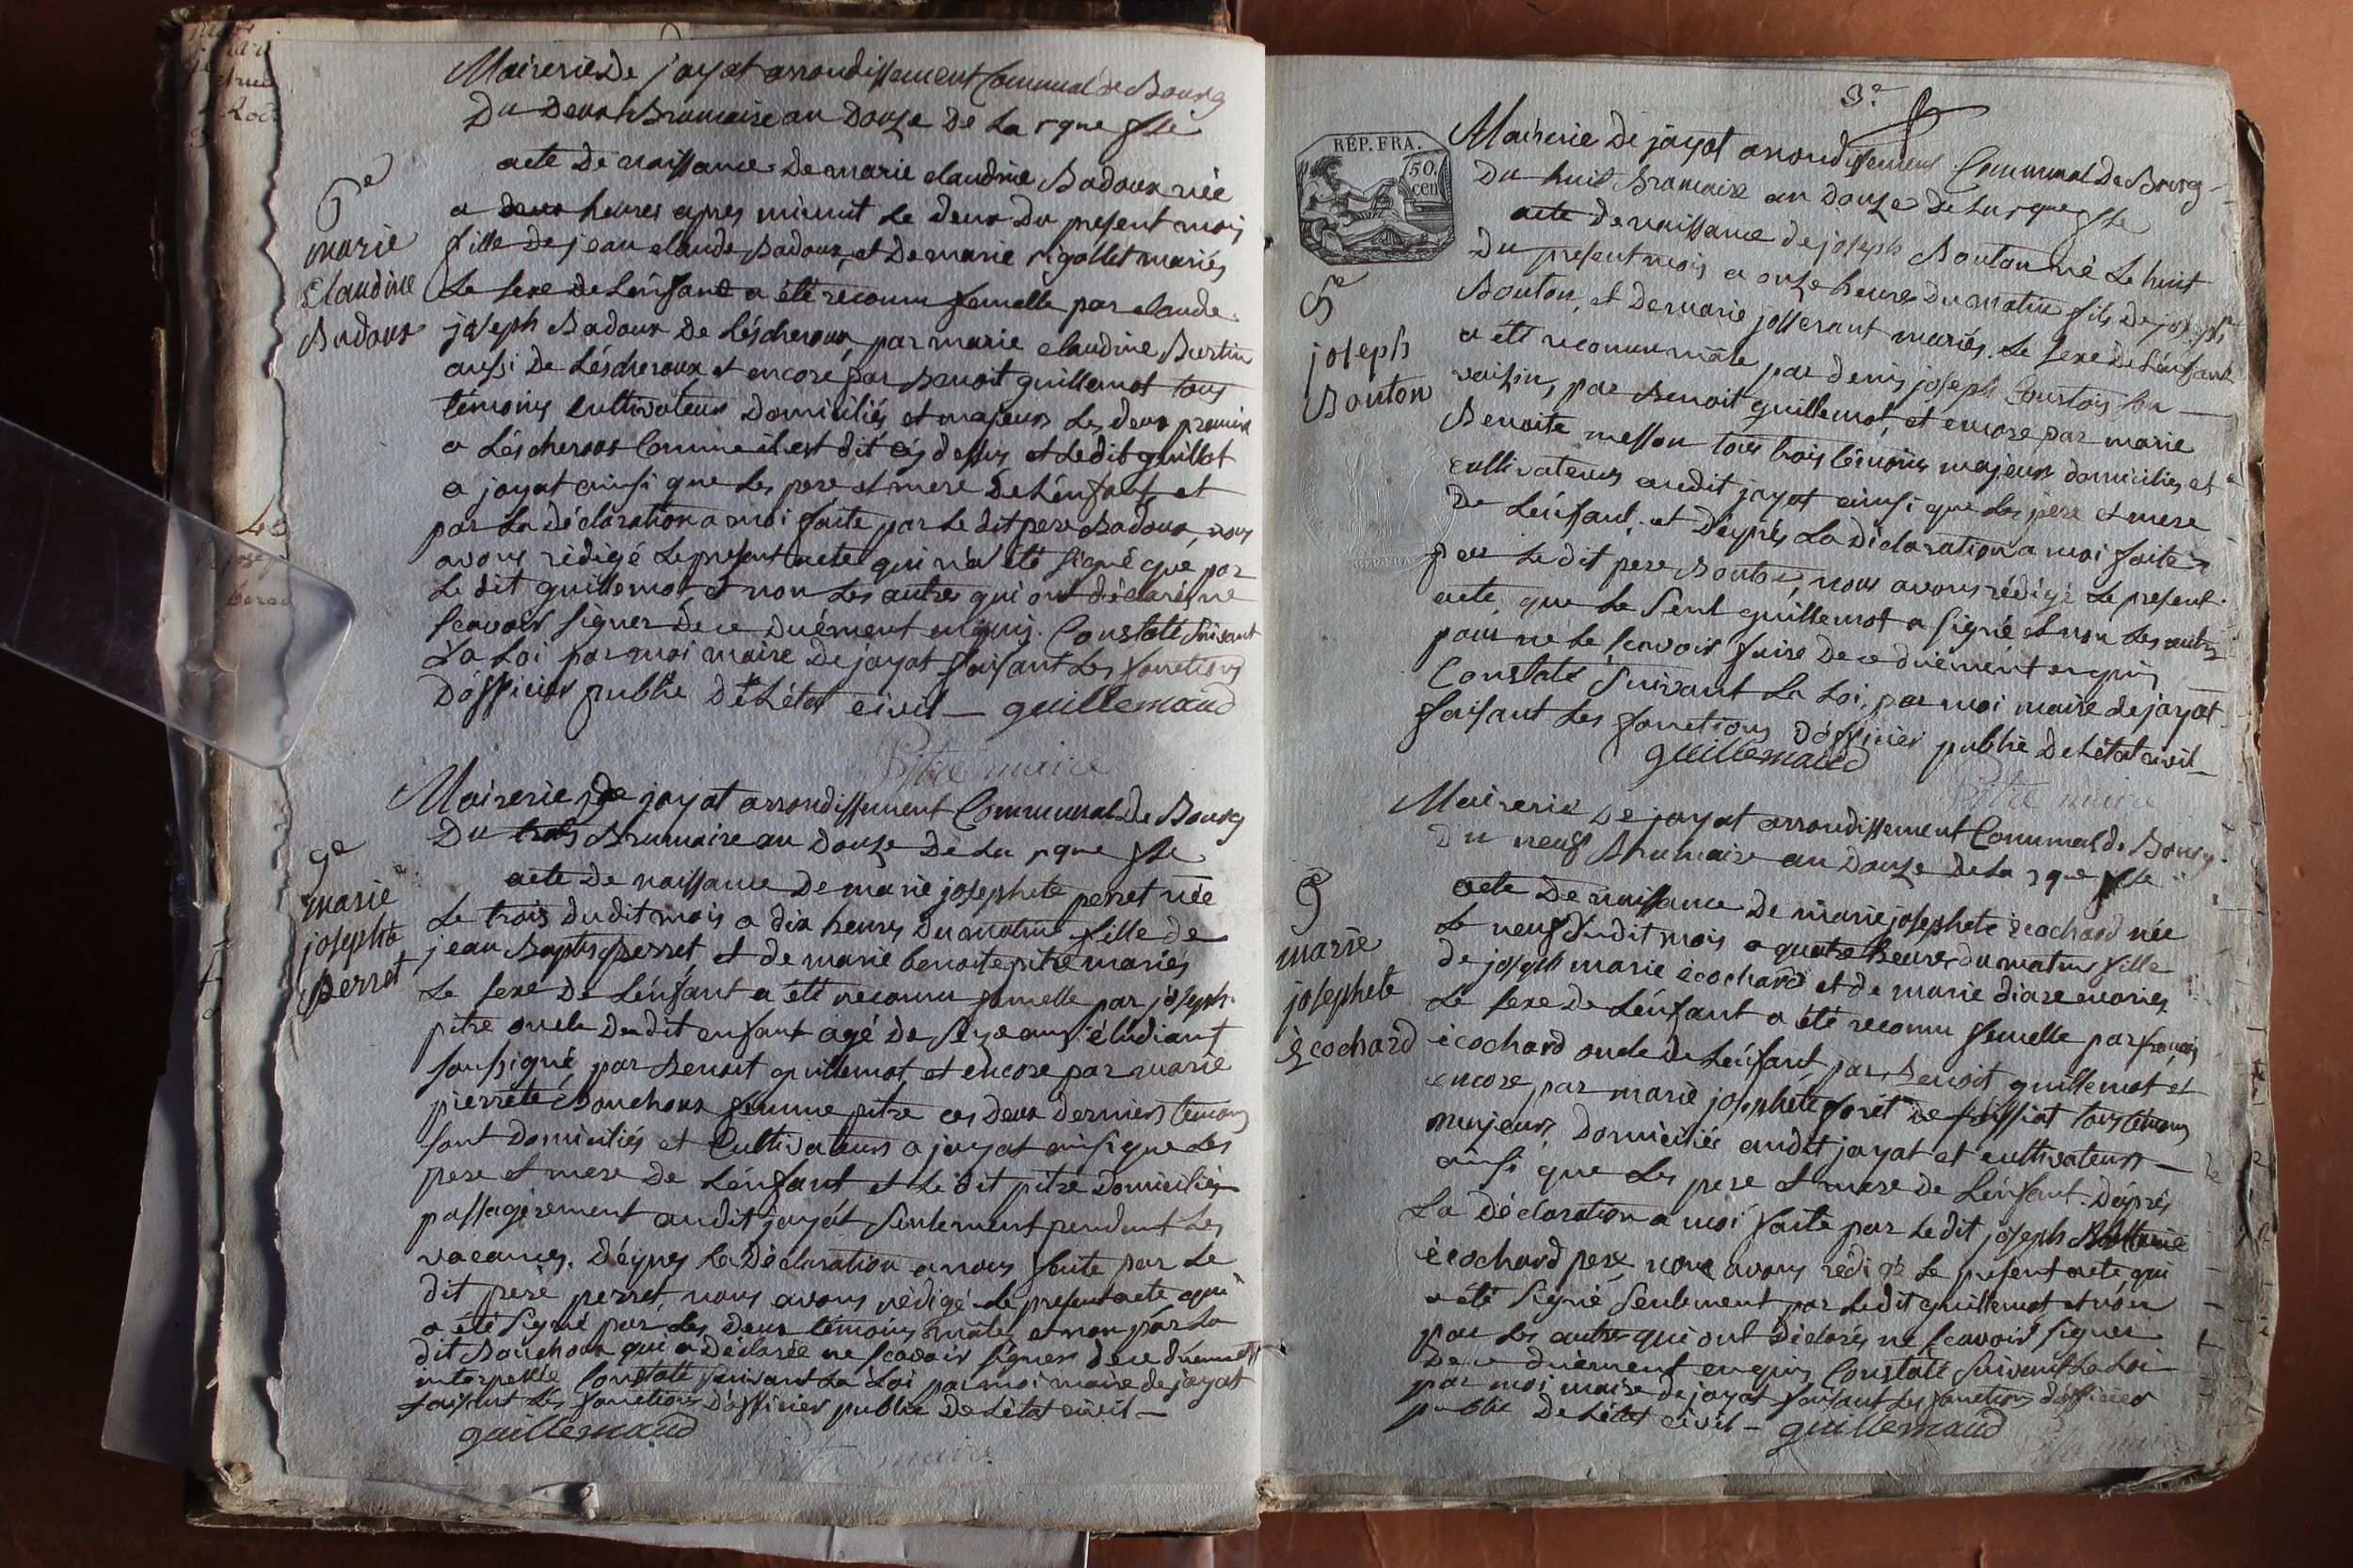 Mairerie De jayat arrondissement Communal de Bourg
Du Deux Brumaire an Douze De La rque fse
6e
marie
Claudine
Badoux
acte De naissance De marie claudine Badoux née
a deux heures apres minuit Le deux Du present mois
fille De jean claude Badoux, et De marie rigollet mariés
Le sexe De Lénfant a été reconnu femelle par claude
joseph Badoux De Léscheroux, par marie claudine Burtin
aussi De Léscheroux, et encore par Benoit guillemot tous
témoins cultivateurs Domiciliés et majeurs Les deux premiers
a Léscheroux Comme il est dit cy dessus et Ledit guillot
a jayat ainsi que Les pere et mere De Lénfant, et
par La déclaration a moi faite par Le dit pere Badoux, nous
avons rédigé Le present acte qui n'a été signé que par
Le dit guillemot, et non Les autres qui ont déclaré ne
scavoir signer De ce Duément enquis. Constaté suivant
La Loi par moi maire De jayat faisant Les fonctions
D'officier public De Létat civil — guillemaud
Pitre maire
Mairerie De jayat arrondissement Communal De Bourg
Du trois Brumaire an Douze De La rque fse
marie
josephte
perret
acte De naissance De marie josephete perret née
Le trois dudit mois a dix heures Du matin fille de
jean Baptiste perret, et de marie benoite pitre mariés
Le sexe De Lénfant a été reconnu femelle par joseph
pitre oncle Du dit enfant agé De seize ans étudiant
soussigné, par Benoit guillemot, et encore par marie
pierrete Bouchoux femme pitre ces Deux Derniers témoins
sont Domiciliés et Cultivateurs a jayat ainsi que Les
pere et mere De Lénfant et Le dit pitre Domiciliés
passagérement audit jayat seulement pendant Les
vacances. D'éspres La Déclaration a nous faite par Le
dit pere perret, nous avons rédigé Le present acte qui
a été signé par Les Deux témoins mâles et non par La
dit Bouchoux qui a Déclarée ne scavoir signer De ce Duement
interpellée Constaté suivant La Loi par moi maire de jayat
faisant Les fonctions D'officier public De Létat civil —
guillemaud
Pitre maire
3e
RÉP. FRA.
50.
cen
Mairerie De jayat arrondissement Communal De Bourg
Du huit Brumaire an Douze De La rque fse
joseph
Bouton
acte De naissance De joseph Bouton né Le huit
Du present mois a onze heures Du matin fils De joseph
Bouton, et De marie josserant mariés. Le sexe De Lénfant
a été reconnu mâle par denis joseph Courtois son
voisin, par Benoit guillemot, et encore par marie
Benoite messon tous trois témoins majeurs domiciliés et
cultivateurs audit jayat ainsi que Les pere et mere
De Lénfant. et D'éspres La Déclaration a moi faite
par Le dit pere Bouton, nous avons rédigé Le present
acte, que Le seul guillemot a signé et non Les autres
pour ne Le scavoir faire De ce duément enquis
Constaté suivant La Loi, par moi maire de jayat
faisant Les fonctions D'officier public De Létat civil —
guillemaud
Pitre maire
Mairerie De jayat arrondissement Communal de Bourg
Du neuf Brumaire an Douze De La rque fse
9
marie
josephete
Ècochard
acte De naissance De marie josephete ècochard née
Le neuf Dudit mois a quatre heures du matin fille
de joseph marie ècochard et de marie diare mariés
Le sexe De Lénfant a été reconnu femelle par françois
ècochard oncle De Lénfant, par Benoit guillemot et
encore par marie josephete forét De foissiat tous témoins
majeurs, Domiciliés audit jayat et cultivateurs —
ainsi que Les pere et mere De Lénfant. D'éspres
La Déclaration a moi faite par Le dit joseph
ècochard pere nous avons rédigé Le present acte qui
a été signé seulement par Ledit guillemot et non
par Les autres qui ont Déclarés ne scavoir signer
De ce duément enquis Constaté suivant La Loi
par moi maire de jayat faisant Les fonctions d'officier
public De Létat civil — guillemaud
Pitre maire